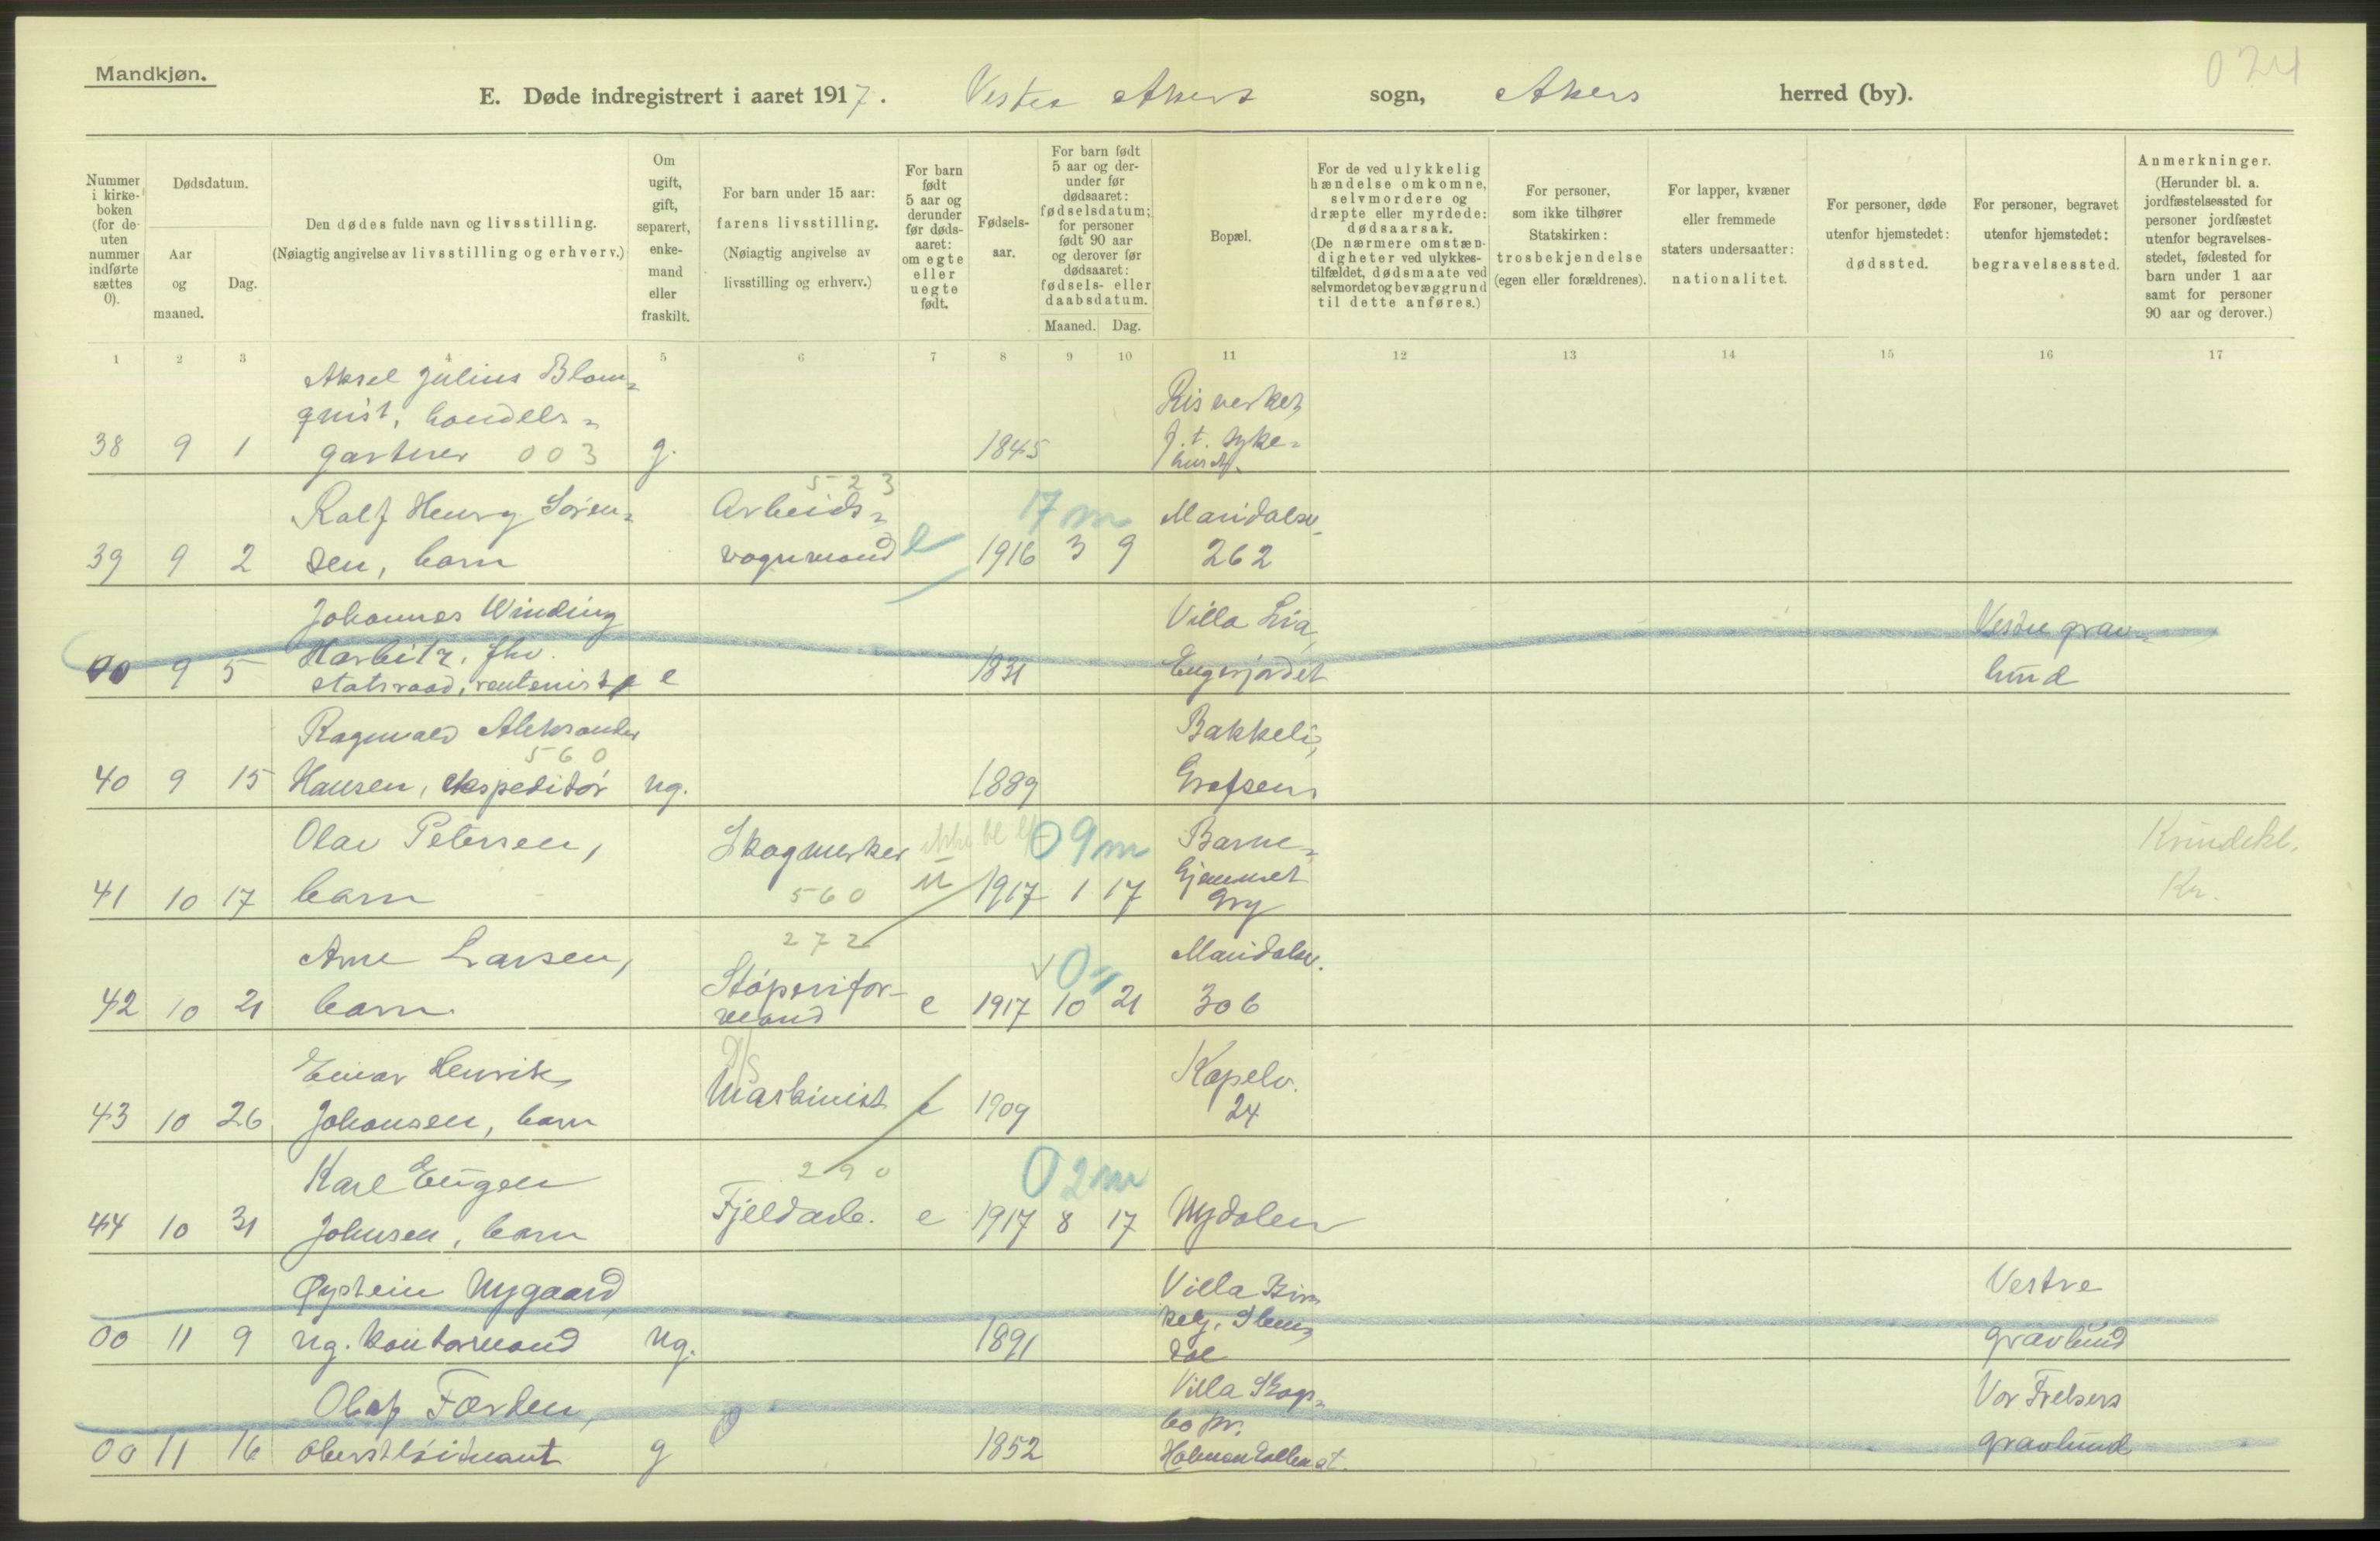 Mandkjøn.
024
E. Døde indregistrert i aaret 1917. Vestre Akers sogn, Akers herred (by).
Nummer i kirke-boken (for de uten nummer indførte sættes 0).
Dødsdatum.
Aar og maaned.
Dag.
Den dødes fulde navn og livsstilling.
(Nøiagtig angivelse av livsstilling og erhverv.)
Om ugift, gift, separert, enke-mand eller fraskilt.
For barn under 15 aar:
farens livsstilling.
(Nøiagtig angivelse av livsstilling og erhverv.)
For barn født 5 aar og derunder før døds-aaret: om egte eller uegte født.
Fødsels-aar.
For barn født 5 aar og der-under før dødsaaret: fødselsdatum; for personer født 90 aar og derover før dødsaaret: fødsels- eller daabsdatum.
Maaned. Dag.
Bopæl.
For de ved ulykkelig hændelse omkomne, selvmordere og dræpte eller myrdede: dødsaarsak.
(De nærmere omstæn-digheter ved ulykkes-tilfældet, dødsmaate ved selvmordet og bevæggrund til dette anføres.)
For personer, som ikke tilhører Statskirken: trosbekjendelse (egen eller forældrenes).
For lapper, kvæner eller fremmede staters undersaatter: nationalitet.
For personer, døde utenfor hjemstedet: dødssted.
For personer, begravet utenfor hjemstedet: begravelsessted.
Anmerkninger.
(Herunder bl. a. jordfæstelsessted for personer jordfæstet utenfor begravelses-stedet, fødested for barn under 1 aar samt for personer 90 aar og derover.)
1 2 3 4 5 6 7 8 9 10 11 12 13 14 15 16 17
Aksel Julius Blom=
qvist, handels=
38 9 1 gartner 003 g. 1845
f. t. syke=
huset.
523
Ralf Henry Søren= Arbeids= 17m Maridalsv.
39 9 2 sen, barn vognmand e 1916 3 9 262
Johannes Winding Villa Lia, Vestre grav=
Harbitz, fhv.
00 9 5 statsraad, rentenist e 1831 Engerjordet lund
Ragnvald Aleksander Bakkeli,
560
40 9 15 Hansen, ekspeditør ug. 1889 Grefsen
Olav Petersen, Skogmerker 09m Barne=
41 10 17 barn 560 u 1917 1 17 hjemmet
Gry
Kr.
272
Arne Larsen, 0 Maridalsv.
42 10 21 barn. Støperifor-
mand e 1917 10 21 306
Einar Henrik Kapelv.
43 10 26 Johansen, barn Maskinist e 1909 24
290
Karl Eugen 02m
44 10 31 Johnsen, barn Fjeldarb. e 1917 8 17 Nydalen
Øystein Nygaard, Villa Bir= Vestre
00 11 9 ug. kontormand ug. 1891 dal gravlund
Olaf Færden, Villa Skogs= Vor Frelsers
bo pr.
00 11 16 oberstløitnant g 1852 Holmenkollen st. gravlund